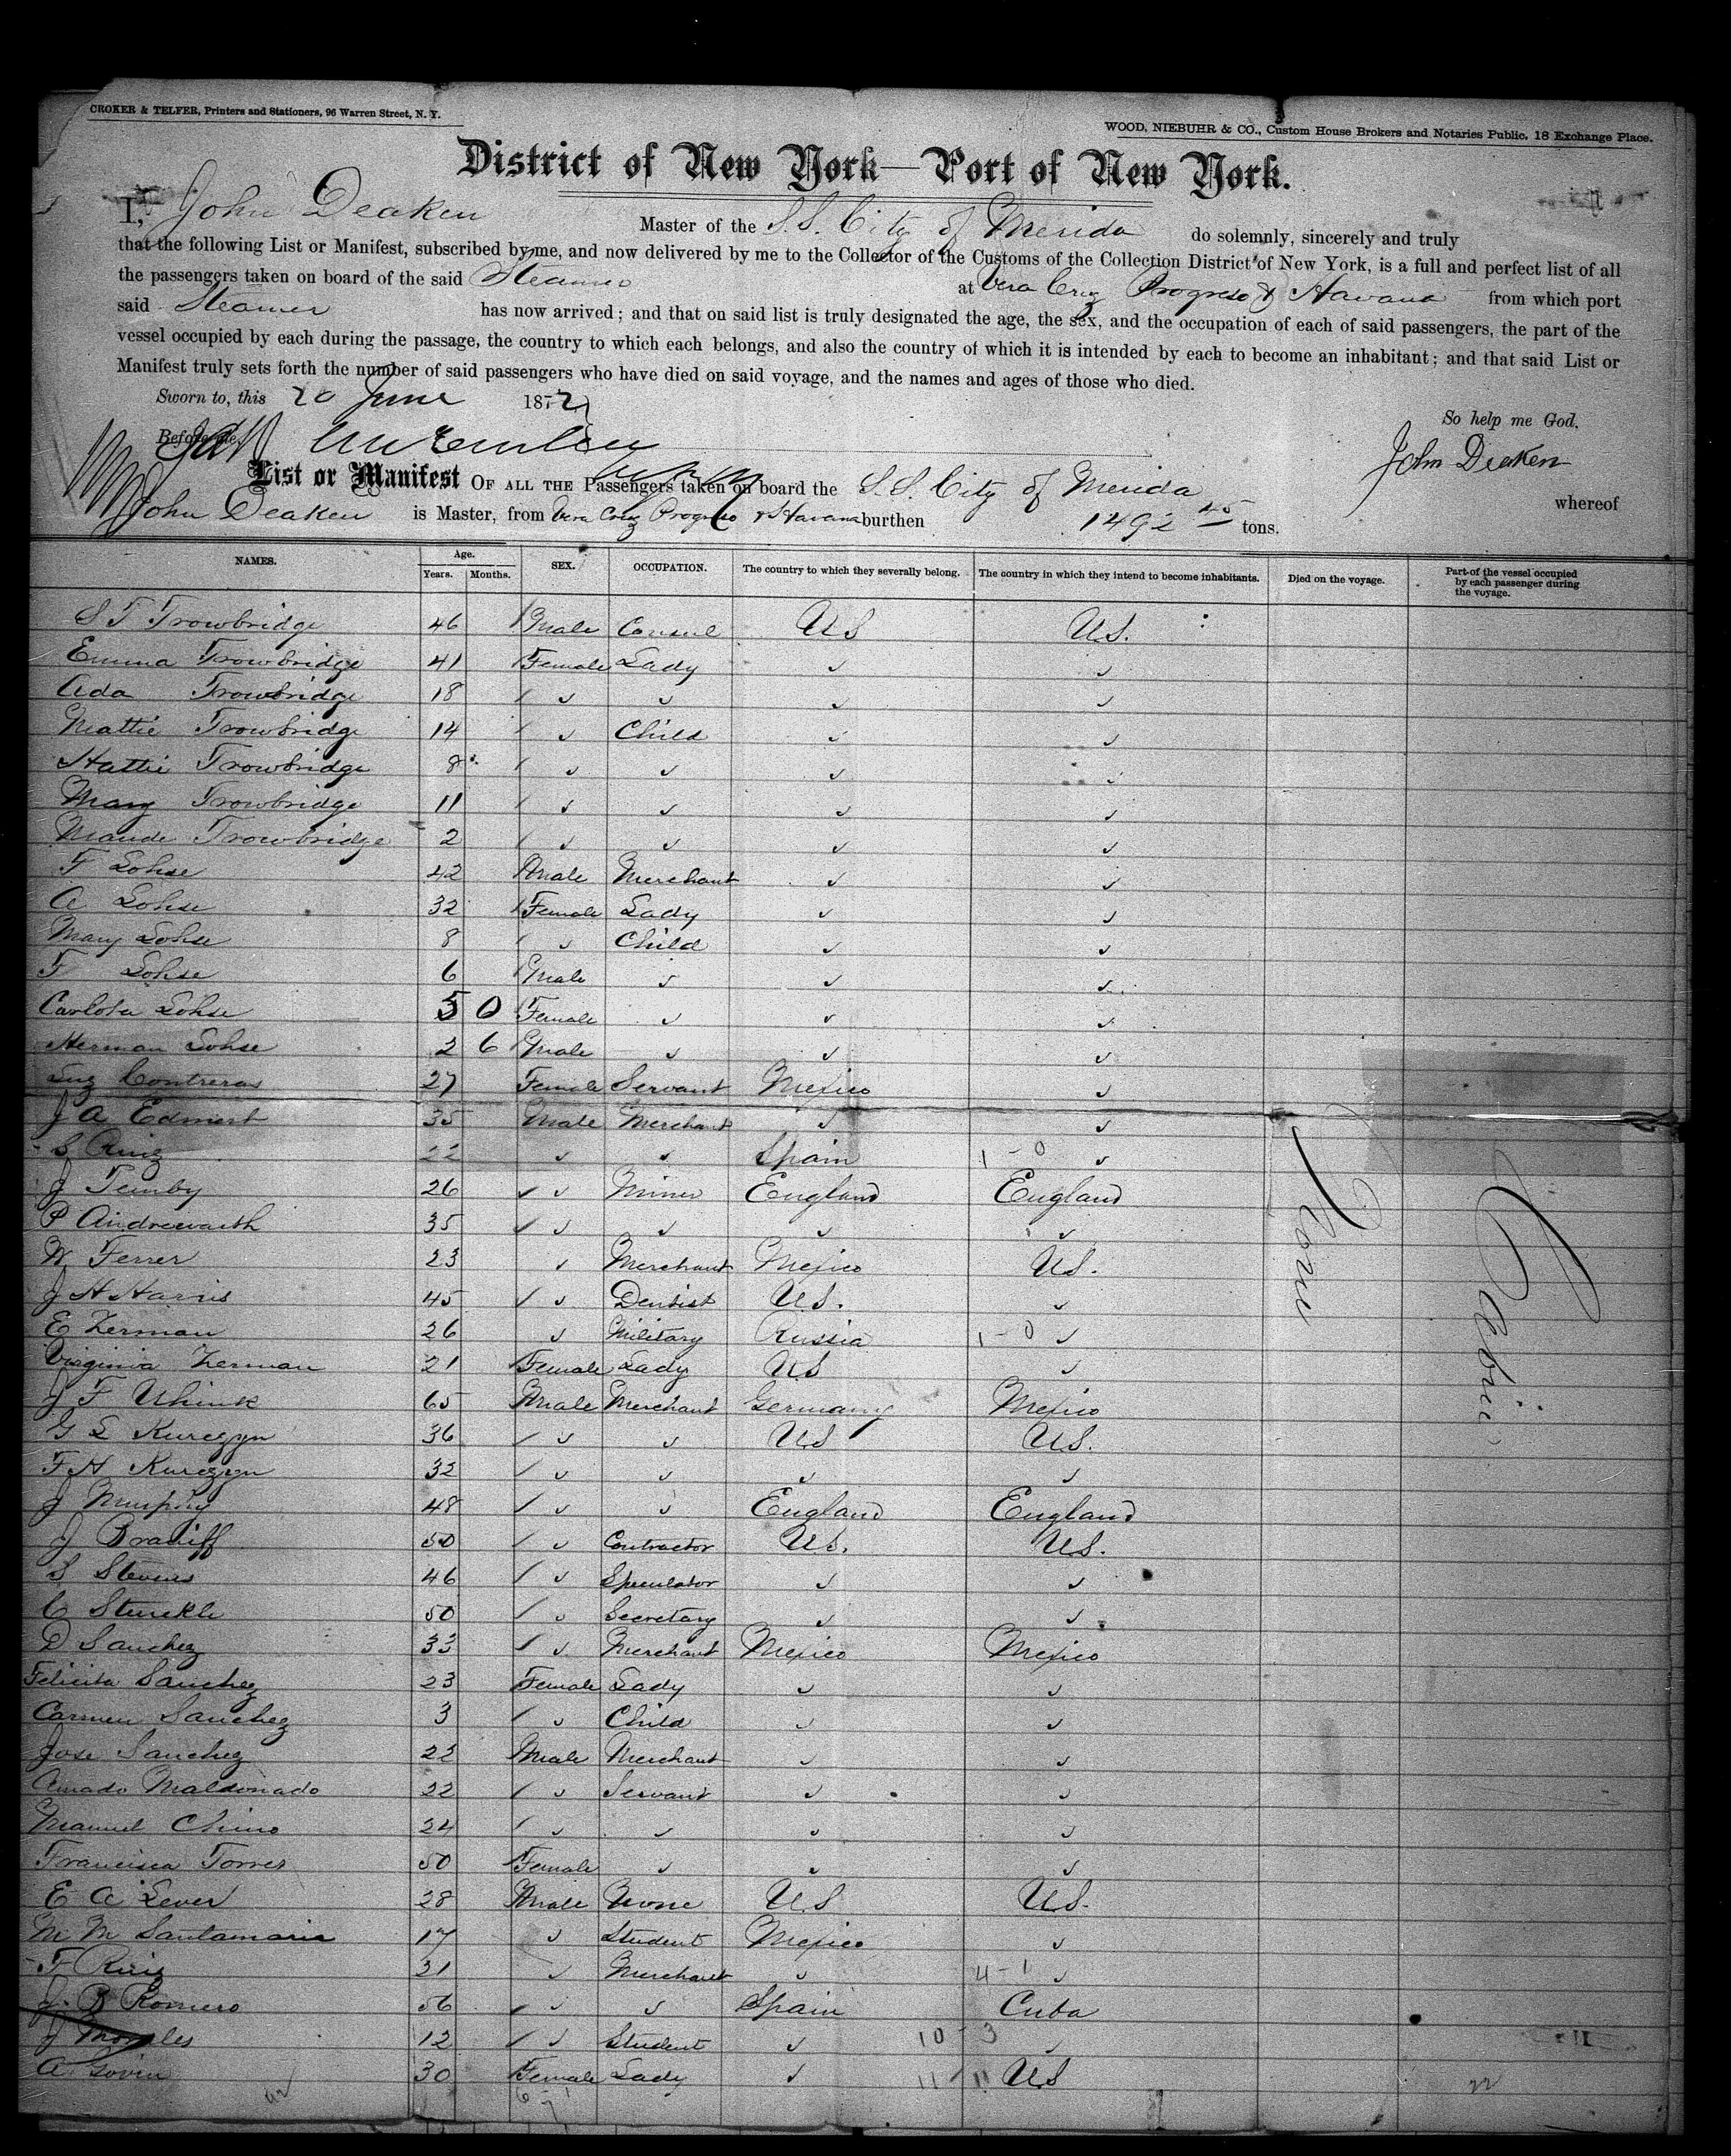 CROKER & TELFER, Printers and Stationers, 96 Warren Street, N. Y.
WOOD, NIEBUHR & CO., Custom House Brokers and Notaries Public, 18 Exchange Place.
District of New York—Port of New York.
I, John Deaken Master of the S.S. City of Merida do solemnly, sincerely and truly
that the following List or Manifest, subscribed by me, and now delivered by me to the Collector of the Customs of the Collection District of New York, is a full and perfect list of all
the passengers taken on board of the said Steamer at Vera Cruz Progreso & Havana from which port
said Steamer has now arrived; and that on said list is truly designated the age, the sex, and the occupation of each of said passengers, the part of the
vessel occupied by each during the passage, the country to which each belongs, and also the country of which it is intended by each to become an inhabitant; and that said List or
Manifest truly sets forth the number of said passengers who have died on said voyage, and the names and ages of those who died.
Sworn to, this 20 June 1872
So help me God,
Before me,
John Deaken
List or Manifest OF ALL THE Passengers taken on board the S.S. City of Merida whereof
John Deaken is Master, from Vera Cruz Progreso & Havana burthen 1492 45 tons.
NAMES. Age. Years. Months. SEX. OCCUPATION. The country to which they severally belong. The country in which they intend to become inhabitants. Died on the voyage. Part of the vessel occupied by each passenger during the voyage.
S T Trowbridge 46 Male Consul US U.S.
Emma Trowbridge 41 Female Lady ✓ ✓
Ada Trowbridge 18 ✓ ✓ ✓ ✓
Mattie Trowbridge 14 ✓ Child ✓ ✓
Hattie Trowbridge 8 ✓ ✓ ✓ ✓
Mary Trowbridge 11 ✓ ✓ ✓ ✓
Maude Trowbridge 2 ✓ ✓ ✓ ✓
F Lohse 42 Male Merchant ✓ ✓
A Lohse 32 Female Lady ✓ ✓
Mary Lohse 8 ✓ Child ✓ ✓
F Lohse 6 Male ✓ ✓ ✓
Carlota Lohse 5 0 Female ✓ ✓ ✓
Herman Lohse 2 6 Male ✓ ✓ ✓
Luz Contreras 27 Female Servant Mexico ✓
J A Edmert 35 Male Merchant ✓ ✓
S Ruiz 22 ✓ ✓ Spain 1-0 ✓
J Temby 26 ✓ Miner England England
P Andrewarth 35 ✓ ✓ ✓ ✓
W Ferrer 23 ✓ Merchant Mexico U.S.
J H Harris 45 ✓ Dentist U.S. ✓
E Zerman 26 ✓ Military Russia 1-0 ✓
Virginia Zerman 21 Female Lady US ✓
J F Uhink 65 Male Merchant Germany Mexico
G L Kuregyn 36 ✓ ✓ US U.S.
F H Kurczyn 32 ✓ ✓ ✓ ✓
J Murphy 48 ✓ ✓ England England
J Braniff 50 ✓ Contractor U.S. U.S.
S Stevens 46 ✓ Speculator ✓ ✓
C Sturckle 50 ✓ Secretary ✓ ✓
D Sanchez 33 ✓ Merchant Mexico Mexico
Felicita Sanchez 23 Female Lady ✓ ✓
Carmen Sanchez 3 ✓ Child ✓ ✓
Jose Sanchez 22 Male Merchant ✓ ✓
Amado Maldonado 22 ✓ Servant ✓ ✓
Manuel Chino 24 ✓ ✓ ✓ ✓
Francisca Torres 50 Female ✓ ✓ ✓
E A Lever 28 Male None U.S U.S.
M M Santamaria 17 ✓ Student Mexico ✓
F Ruiz 31 ✓ Merchant ✓ 4-1 ✓
J. B Romero 56 ✓ ✓ Spain Cuba
J Morales 12 ✓ Student ✓ 10-3 ✓
A Govin 30 Female Lady ✓ 11/11 US
None
Cabin
6-1
7